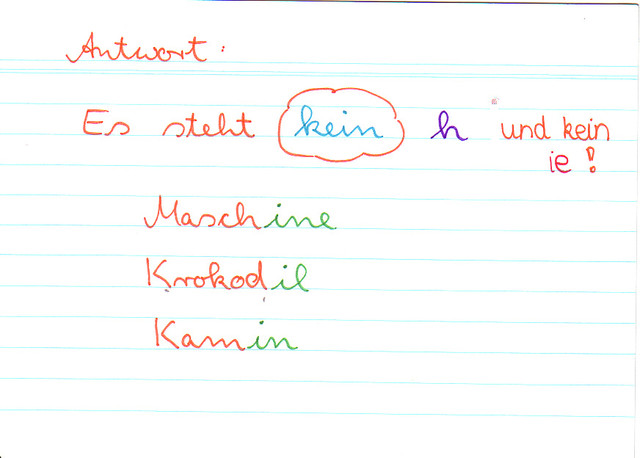 Antwort:
Es steht kein h und kein
ie!
Maschine
Krokodil
Kamin